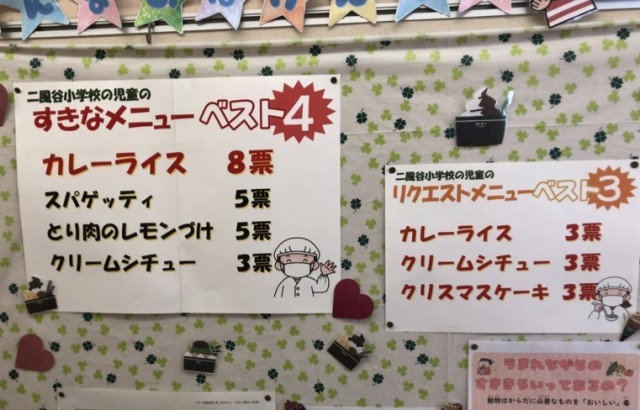 二風谷小学校の児童の
すきなメニューベスト4
カレーライス 8票
スパゲッティ 5票
とり肉のレモンづけ 5票
クリームシチュー 3票
二風谷小学校の児童の
リクエストメニューベスト3
カレーライス 3票
クリームシチュー 3票
クリスマスケーキ 3票
うまれながらの
すききらいってあるの?
動物はからだに必要なものを「おいしい」